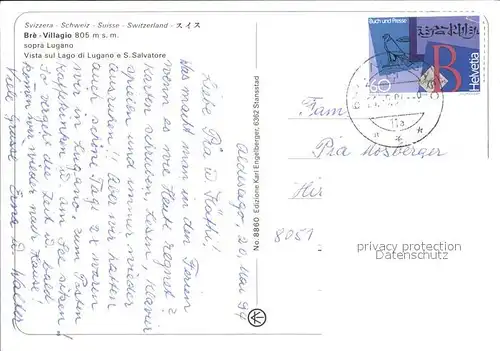 Svizzera - Schweiz - Suisse - Switzerland - スイス
Brè - Villagio 805 m s. m.
sopra Lugano
Vista sul Lago di Lugano e S. Salvatore
Aldesago, 20. Mai 94
Liebe Pia u. Käthi!
Was macht man in den Ferien
wenn es wie Heute regnet?
Karten schreiben, lesen, Klavier
spielen und immer wieder
ausruhen!! Aber wir hatten
auch schöne Tage 2x waren
wir in Lugano, zum Posten
Kaffitrinken u. am See sitzen!
So vergeht die Zeit u. bald
kommen wir wieder nach Hause!
Viele Grüsse Erna u. Walter
No. 8860 Edizione Karl Engelberger, 6362 Stansstad
Buch und Presse
80
B
Helvetia
Fam
Pia Mosberger
His
8051
privacy protection
Datenschutz